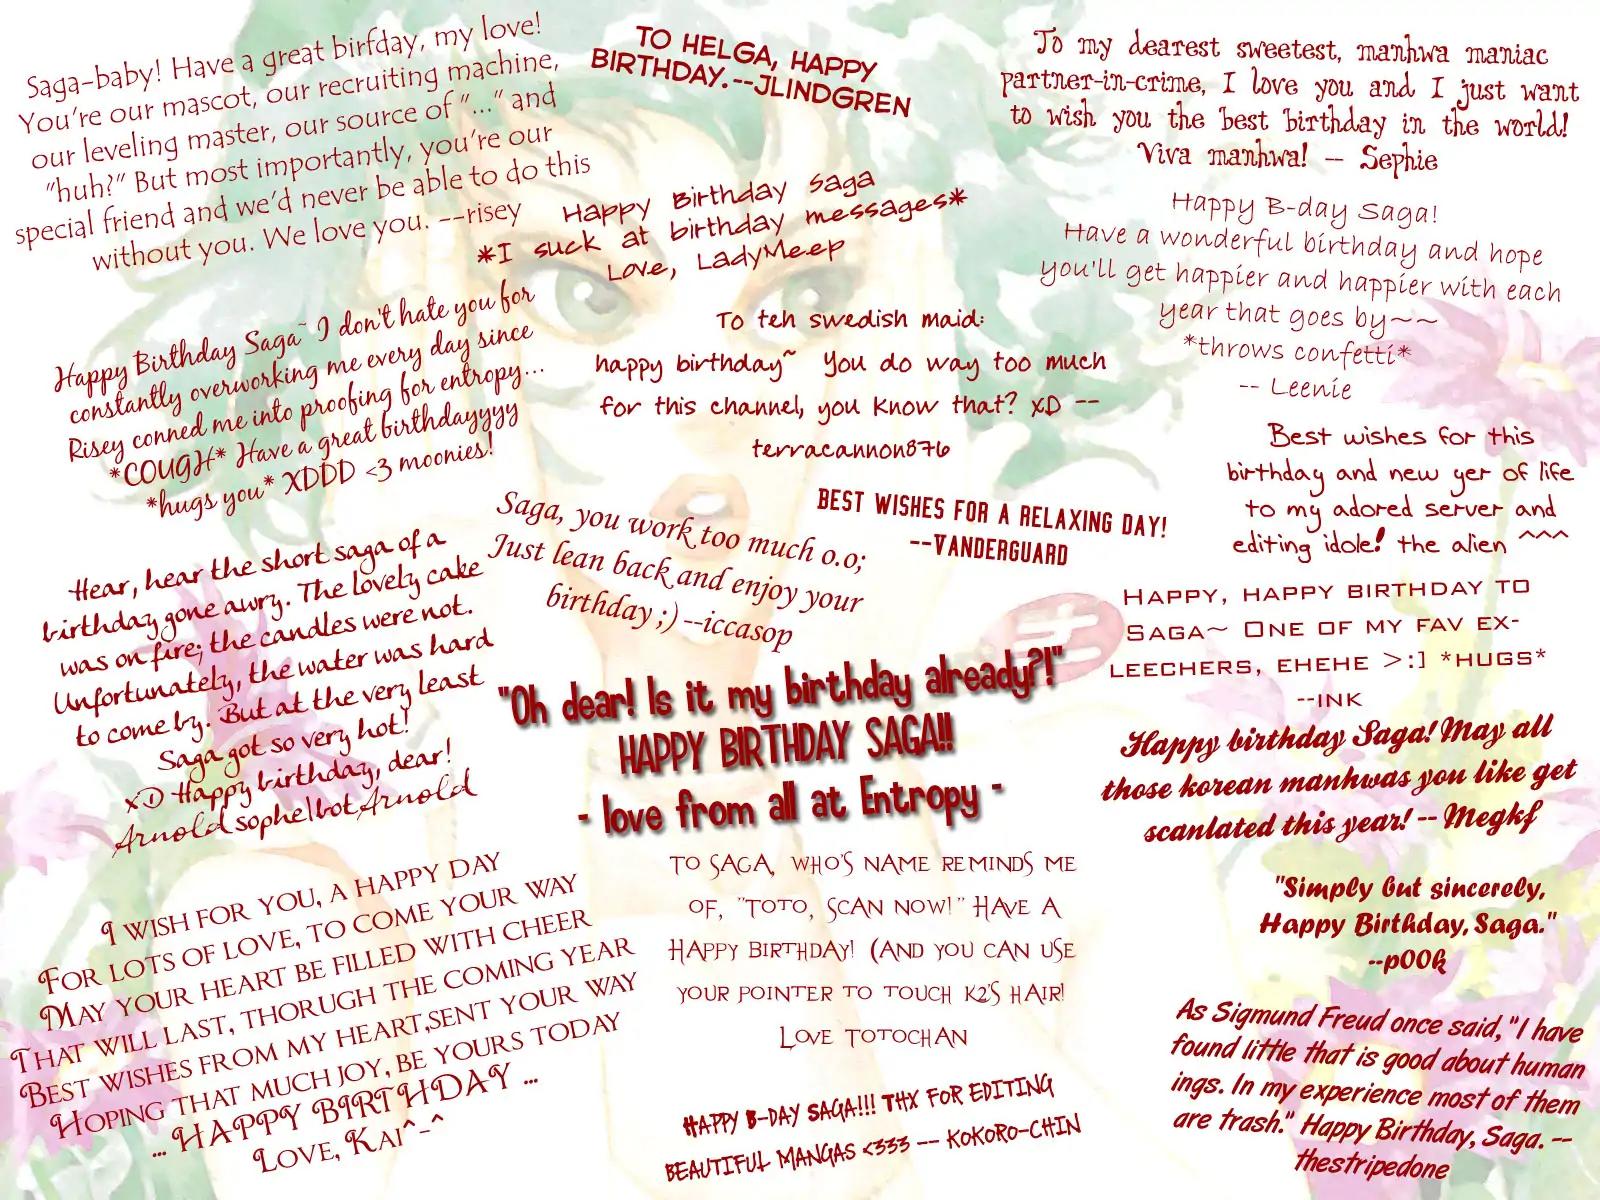 Saga-baby! Have a great birfday, my love!
You're our mascot, our recruiting machine,
our leveling master, our source of "..." and
"huh?" But most importantly, you're our
special friend and we'd never be able to do this
without you. We love you. --risey
TO HELGA, HAPPY
BIRTHDAY.--JLINDGREN
To my dearest sweetest, manhwa maniac
partner-in-crime, I love you and I just want
to wish you the best birthday in the world!
Viva manhwa! -- Sephie
Happy Birthday Saga
*I suck at birthday messages*
Love, LadyMeep
Happy B-day Saga!
Have a wonderful birthday and hope
you'll get happier and happier with each
year that goes by~~
*throws confetti*
-- Leenie
Happy Birthday Saga~ I don't hate you for
constantly overworking me every day since
Risey conned me into proofing for entropy...
*COUGH* Have a great birthdayyyy
*hugs you* XDDD <3 moonies!
To teh swedish maid:
happy birthday~ You do way too much
for this channel, you know that? xD --
terracannon876
Best wishes for this
birthday and new yer of life
to my adored server and
editing idole! the alien ^^^
BEST WISHES FOR A RELAXING DAY!
--VANDERGUARD
Saga, you work too much o.o;
Just lean back and enjoy your
birthday ;) --iccasop
Hear, hear the short saga of a
birthday gone awry. The lovely cake
was on fire; the candles were not.
Unfortunately, the water was hard
to come by. But at the very least
Saga got so very hot!
xD Happy birthday, dear!
Arnold sophelbot Arnold
Happy, happy birthday to
Saga~ One of my fav ex-
leechers, ehehe >:] *hugs*
--ink
"Oh dear! Is it my birthday already?!"
HAPPY BIRTHDAY SAGA!!
- love from all at Entropy -
Happy birthday Saga! May all
those korean manhwas you like get
scanlated this year! -- Megkf
I wish for you, a happy day
For lots of love, to come your way
May your heart be filled with cheer
That will last, thorugh the coming year
Best wishes from my heart,sent your way
Hoping that much joy, be yours today
... HAPPY BIRTHDAY ...
Love, Kai^-^
To Saga, who's name reminds me
of, "Toto, scan now!" Have a
Happy Birthday! (And you can use
your pointer to touch K2's hair!
Love Totochan
"Simply but sincerely,
Happy Birthday, Saga."
--p00k
As Sigmund Freud once said, "I have
found little that is good about human
ings. In my experience most of them
are trash." Happy Birthday, Saga. --
thestripedone
HAPPY B-DAY SAGA!!! THX FOR EDITING
BEAUTIFUL MANGAS <333 -- KOKORO-CHIN